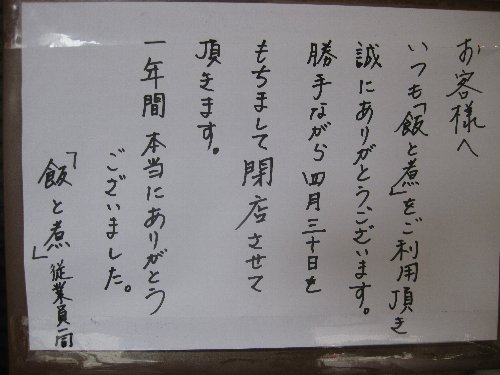 お客様へ
いつも「飯と煮」をご利用頂き
誠にありがとうございます。
勝手ながら四月三十日を
もちまして閉店させて
頂きます。
一年間本当にありがとう
ございました。
「飯と煮」従業員一同